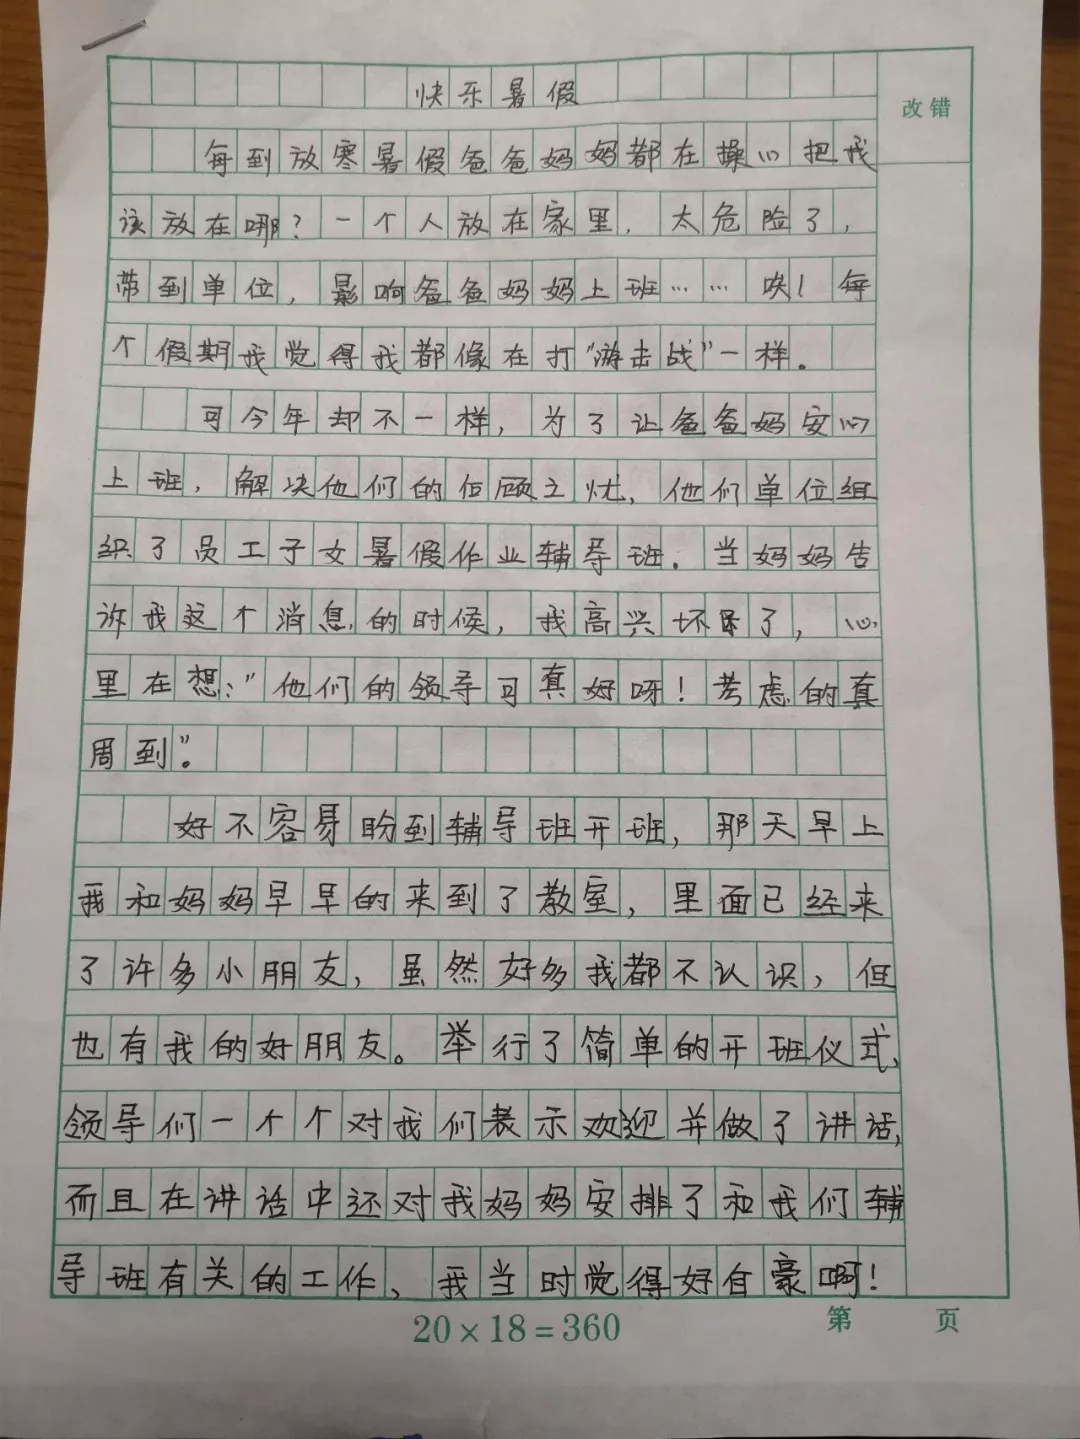 快乐暑假
改错
每到放寒暑假爸爸妈妈都在操心把我
该放在哪？一个人放在家里，太危险了，
带到单位，影响爸爸妈妈上班……唉！每
个假期我觉得我都像在打“游击战”一样。
可今年却不一样，为了让爸爸妈安心
上班，解决他们的后顾之忧，他们单位组
织了员工子女暑假作业辅导班．当妈妈告
诉我这个消息的时候，我高兴坏了，心
里在想：“他们的领导可真好呀！考虑的真
周到”。
好不容易盼到辅导班开班，那天早上
我和妈妈早早的来到了教室，里面已经来
了许多小朋友，虽然好多我都不认识，但
也有我的好朋友。举行了简单的开班仪式，
领导们一个个对我们表示欢迎并做了讲话，
而且在讲话中还对我妈妈安排了和我们辅
导班有关的工作、我当时觉得好自豪啊！
20×18=360
第 页